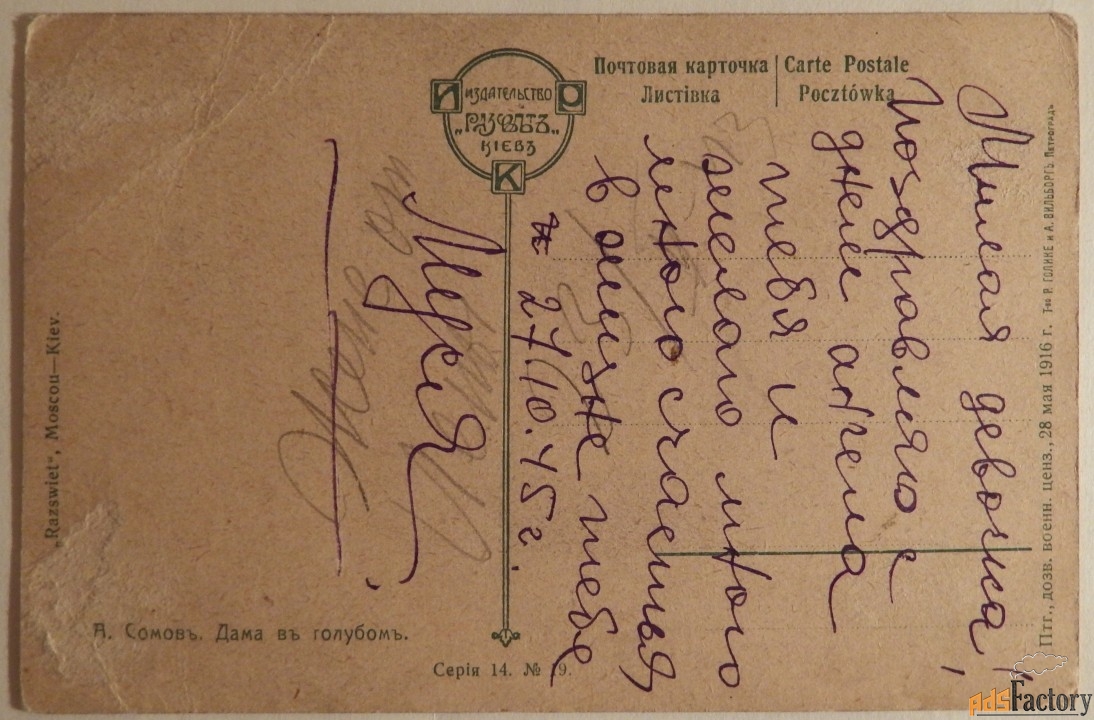 Почтовая карточка
Листівка
Carte Postale
Pocztówka
И
О
К
ИЗДАТЕЛЬСТВО
„РАЗСВѢТЪ„
КІЕВЪ
Милая девочка!
Поздравляю с
днем ангела
тебя и
желаю много
много счастья
в жизне тебе
27/10.45г.
Муся
„Razswiet", Moscou—Kiev.
А. Сомовъ. Дама въ голубомъ.
Серія 14. № 19.
Птг., дозв. военн. ценз., 28 мая 1916 г. Т-во Р. ГОЛИКЕ и А. ВИЛЬБОРГЪ. ПЕТРОГРАДЪ
adsFactory